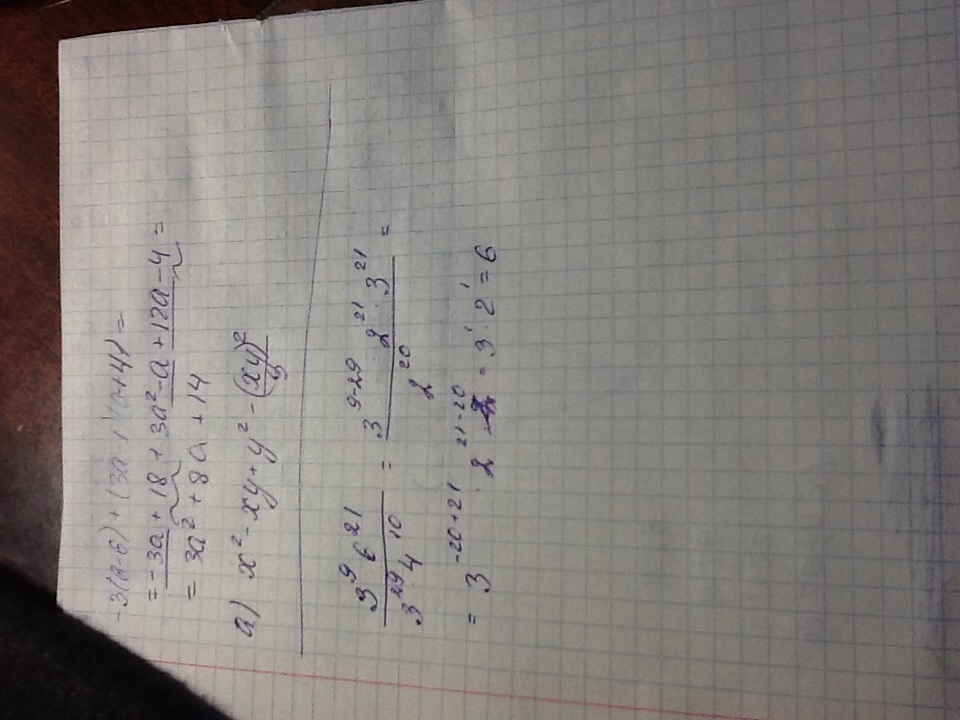 -3(a-6) + (3a-1)(a+4) =
= -3a + 18 + 3a² - a + 12a - 4 =
= 3a² + 8a + 14
a) x² - xy + y² - (xy)²
3⁹ 6²¹ / 3²⁹ 4¹⁰ = 3⁹⁻²⁹ 2²¹ · 3²¹ / 2²⁰ =
= 3⁻²⁰⁺²¹ · 2²¹⁻²⁰ = 3¹ · 2¹ = 6